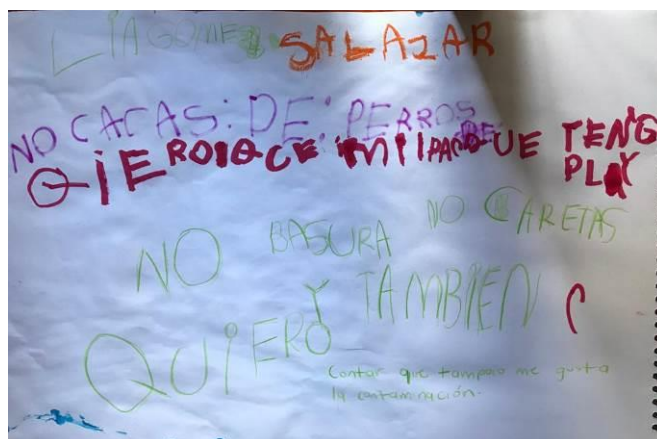 LIA GOMEZ SALAZAR
NO CACAS: DE: PERROS
QiERO QCE Mi PARQUE TENG
PLAY
NO BASURA NO CARETAS
Y TAMBIEN
QUiERO
Contar que tampoco me gusta
la contaminación.